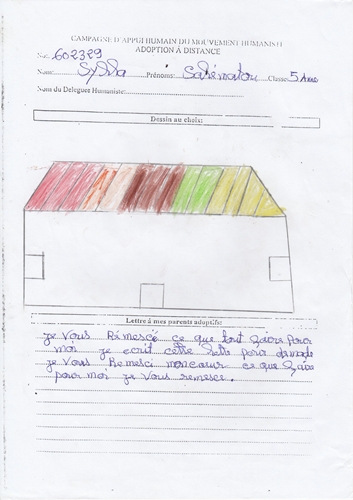 CAMPAGNE D'APPUI HUMAIN DU MOUVEMENT HUMANISTE
ADOPTION À DISTANCE
No: 602329
Nom: Sylla Prénoms: Salématou Classe: 5 Anné
Nom du Delegue Humaniste:
Dessin au choix:
Lettre à mes parents adoptifs:
je Vous Remescé ce que tout pour
moi je ecrit cette pour
je Vous Remesci moncoeur ce que
pour moi je Vous remesce.